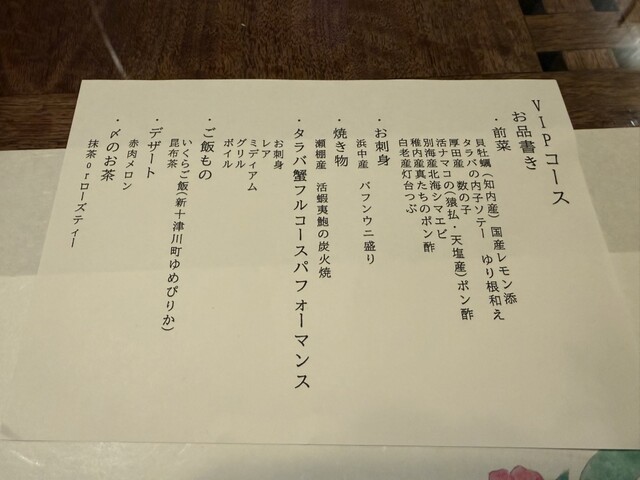 VIPコース
お品書き
・前菜
貝牡蠣(知内産)国産レモン添
タラバの内子ソテー ゆり根和え
厚田産 数の子
活ナマコの(猿払・天塩産)ポン酢
別海産北海シマエビ
稚内産真たちのポン酢
白老産灯台つぶ
・お刺身
浜中産 バフンウニ盛り
・焼き物
瀬棚産 活蝦夷鮑の炭火焼
・タラバ蟹フルコースパフォーマンス
お刺身
レア
ミディアム
グリル
ボイル
・ご飯もの
いくらご飯(新十津川町ゆめぴりか)
昆布茶
・デザート
赤肉メロン
・〆のお茶
抹茶orローズティー